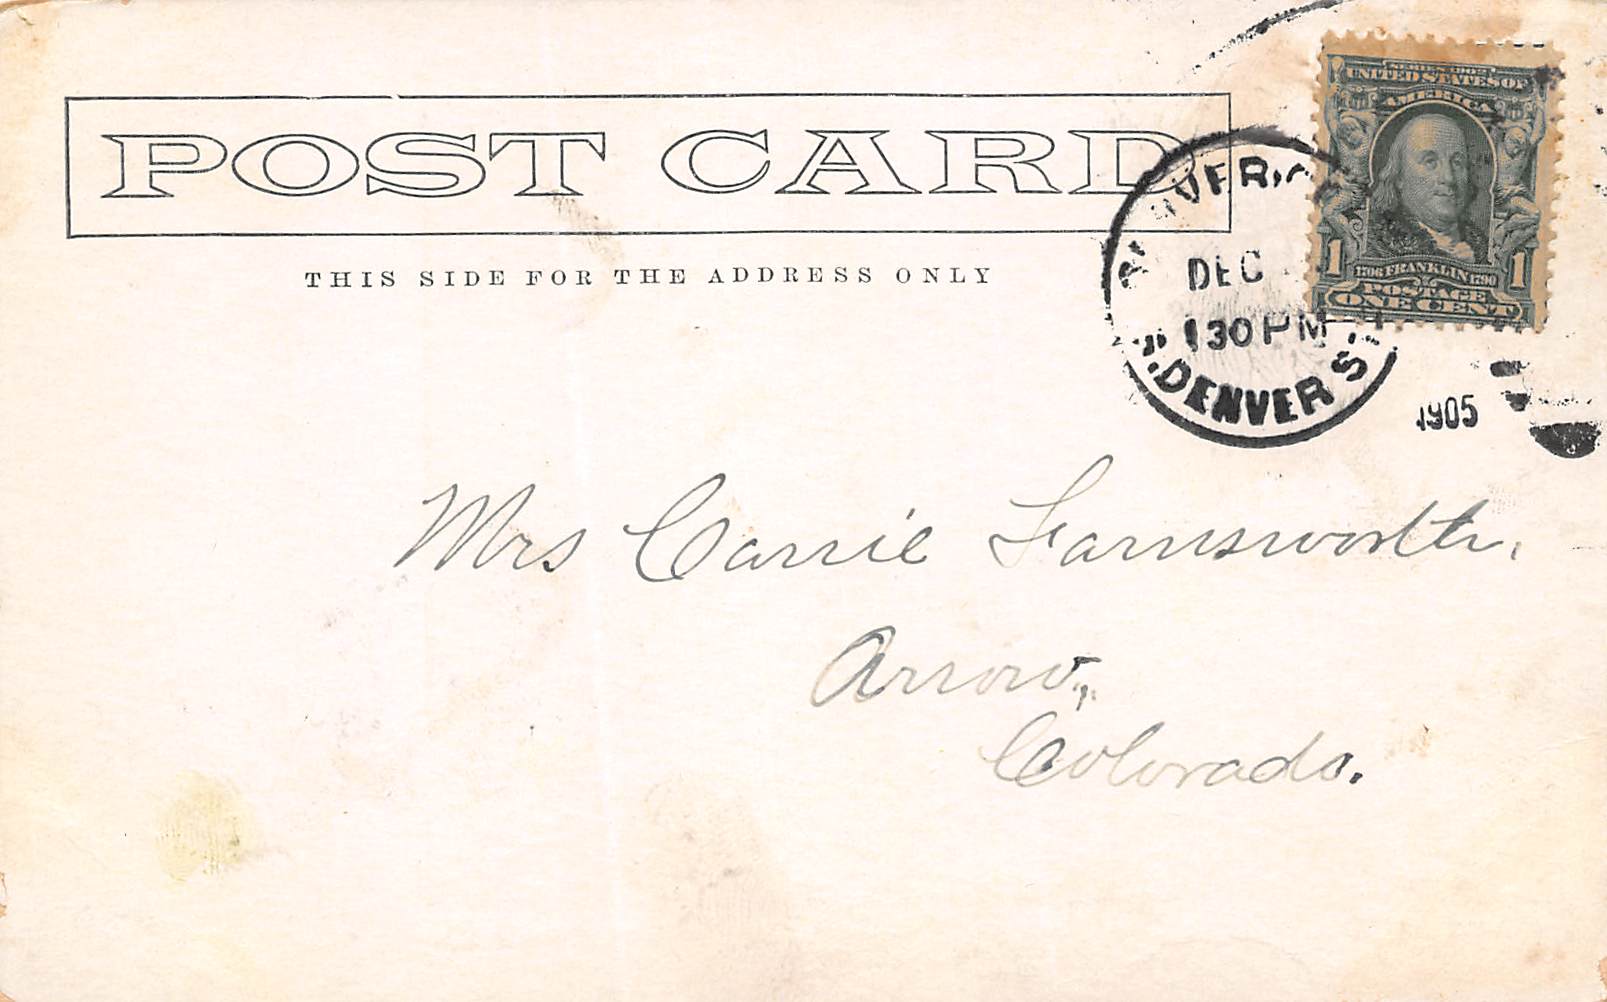 POST CARD
THIS SIDE FOR THE ADDRESS ONLY
DEC
30 PM
DENVER S
1905
SERIES 1902
UNITED STATES OF
AMERICA
1 1
1706 FRANKLIN 1790
POSTAGE
ONE CENT
Mrs Carrie Farnsworth,
Arrow,
Colorado.